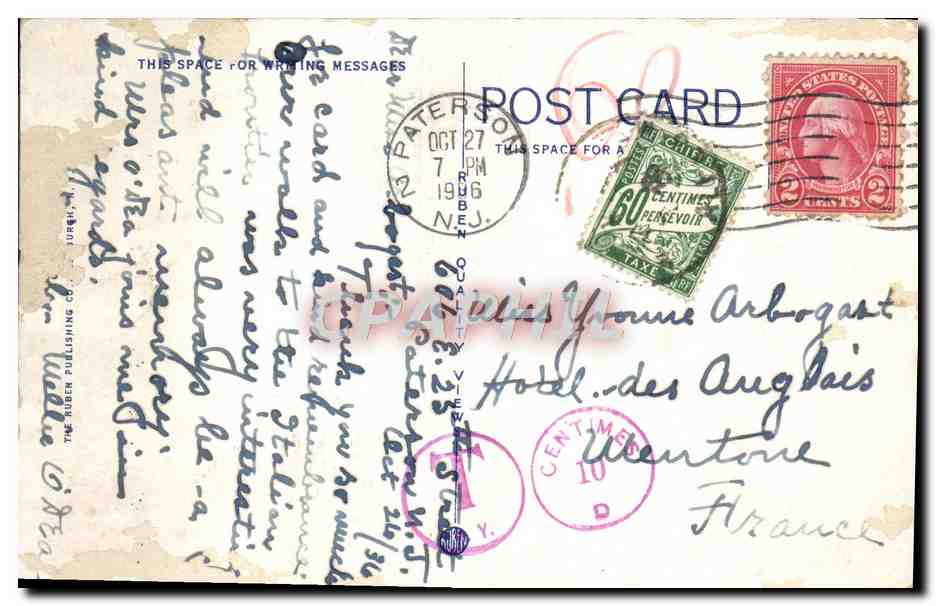 THIS SPACE FOR WRITING MESSAGES
POST CARD
THIS SPACE FOR A
PATERSON
2
OCT 27
7 PM
1936
N.J.
UNITED STATES POSTAGE
WASHINGTON
2 CENTS 2
60
CHIFFRE
CENTIMES
A
PERCEVOIR
60
TAXE
RF
607 E. 25th Street
Paterson N.J.
Oct 26/36
My Miss Arbogast
Thank you so much
for card and kind remembrance
Our walk to the Italian
frontier was very interesting
and will always be a
pleasant memory
Mrs O'Dea joins me in
kind regards.
Wm Mellee O'Dea
Miss Yvonne Arbogast
Hotel des Anglais
Mentone
France
T
Y.
CENTIMES
10
D
RUBEN QUALITY VIEWS
RUBEN
THE RUBEN PUBLISHING CO.
BURGH, N.
CPARAMA